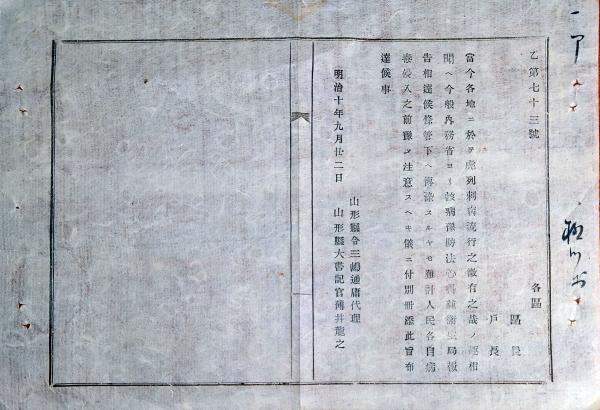 乙第七十三號
各區
區長
戶長
當今各地ニ於テ虎列刺病流行之徵有之哉ノ趣相
聞ヘ今般內務省ヨリ該病豫防法心得幷衞生局報
告相達候條管下ヘ傳染スルヤモ難計人民各自病
毒侵入之前豫シメ注意スヘキ儀ニ付別冊添此旨布
達候事
明治十年九月廿二日
山形縣令三嶋通庸代理
山形縣大書記官薄井龍之